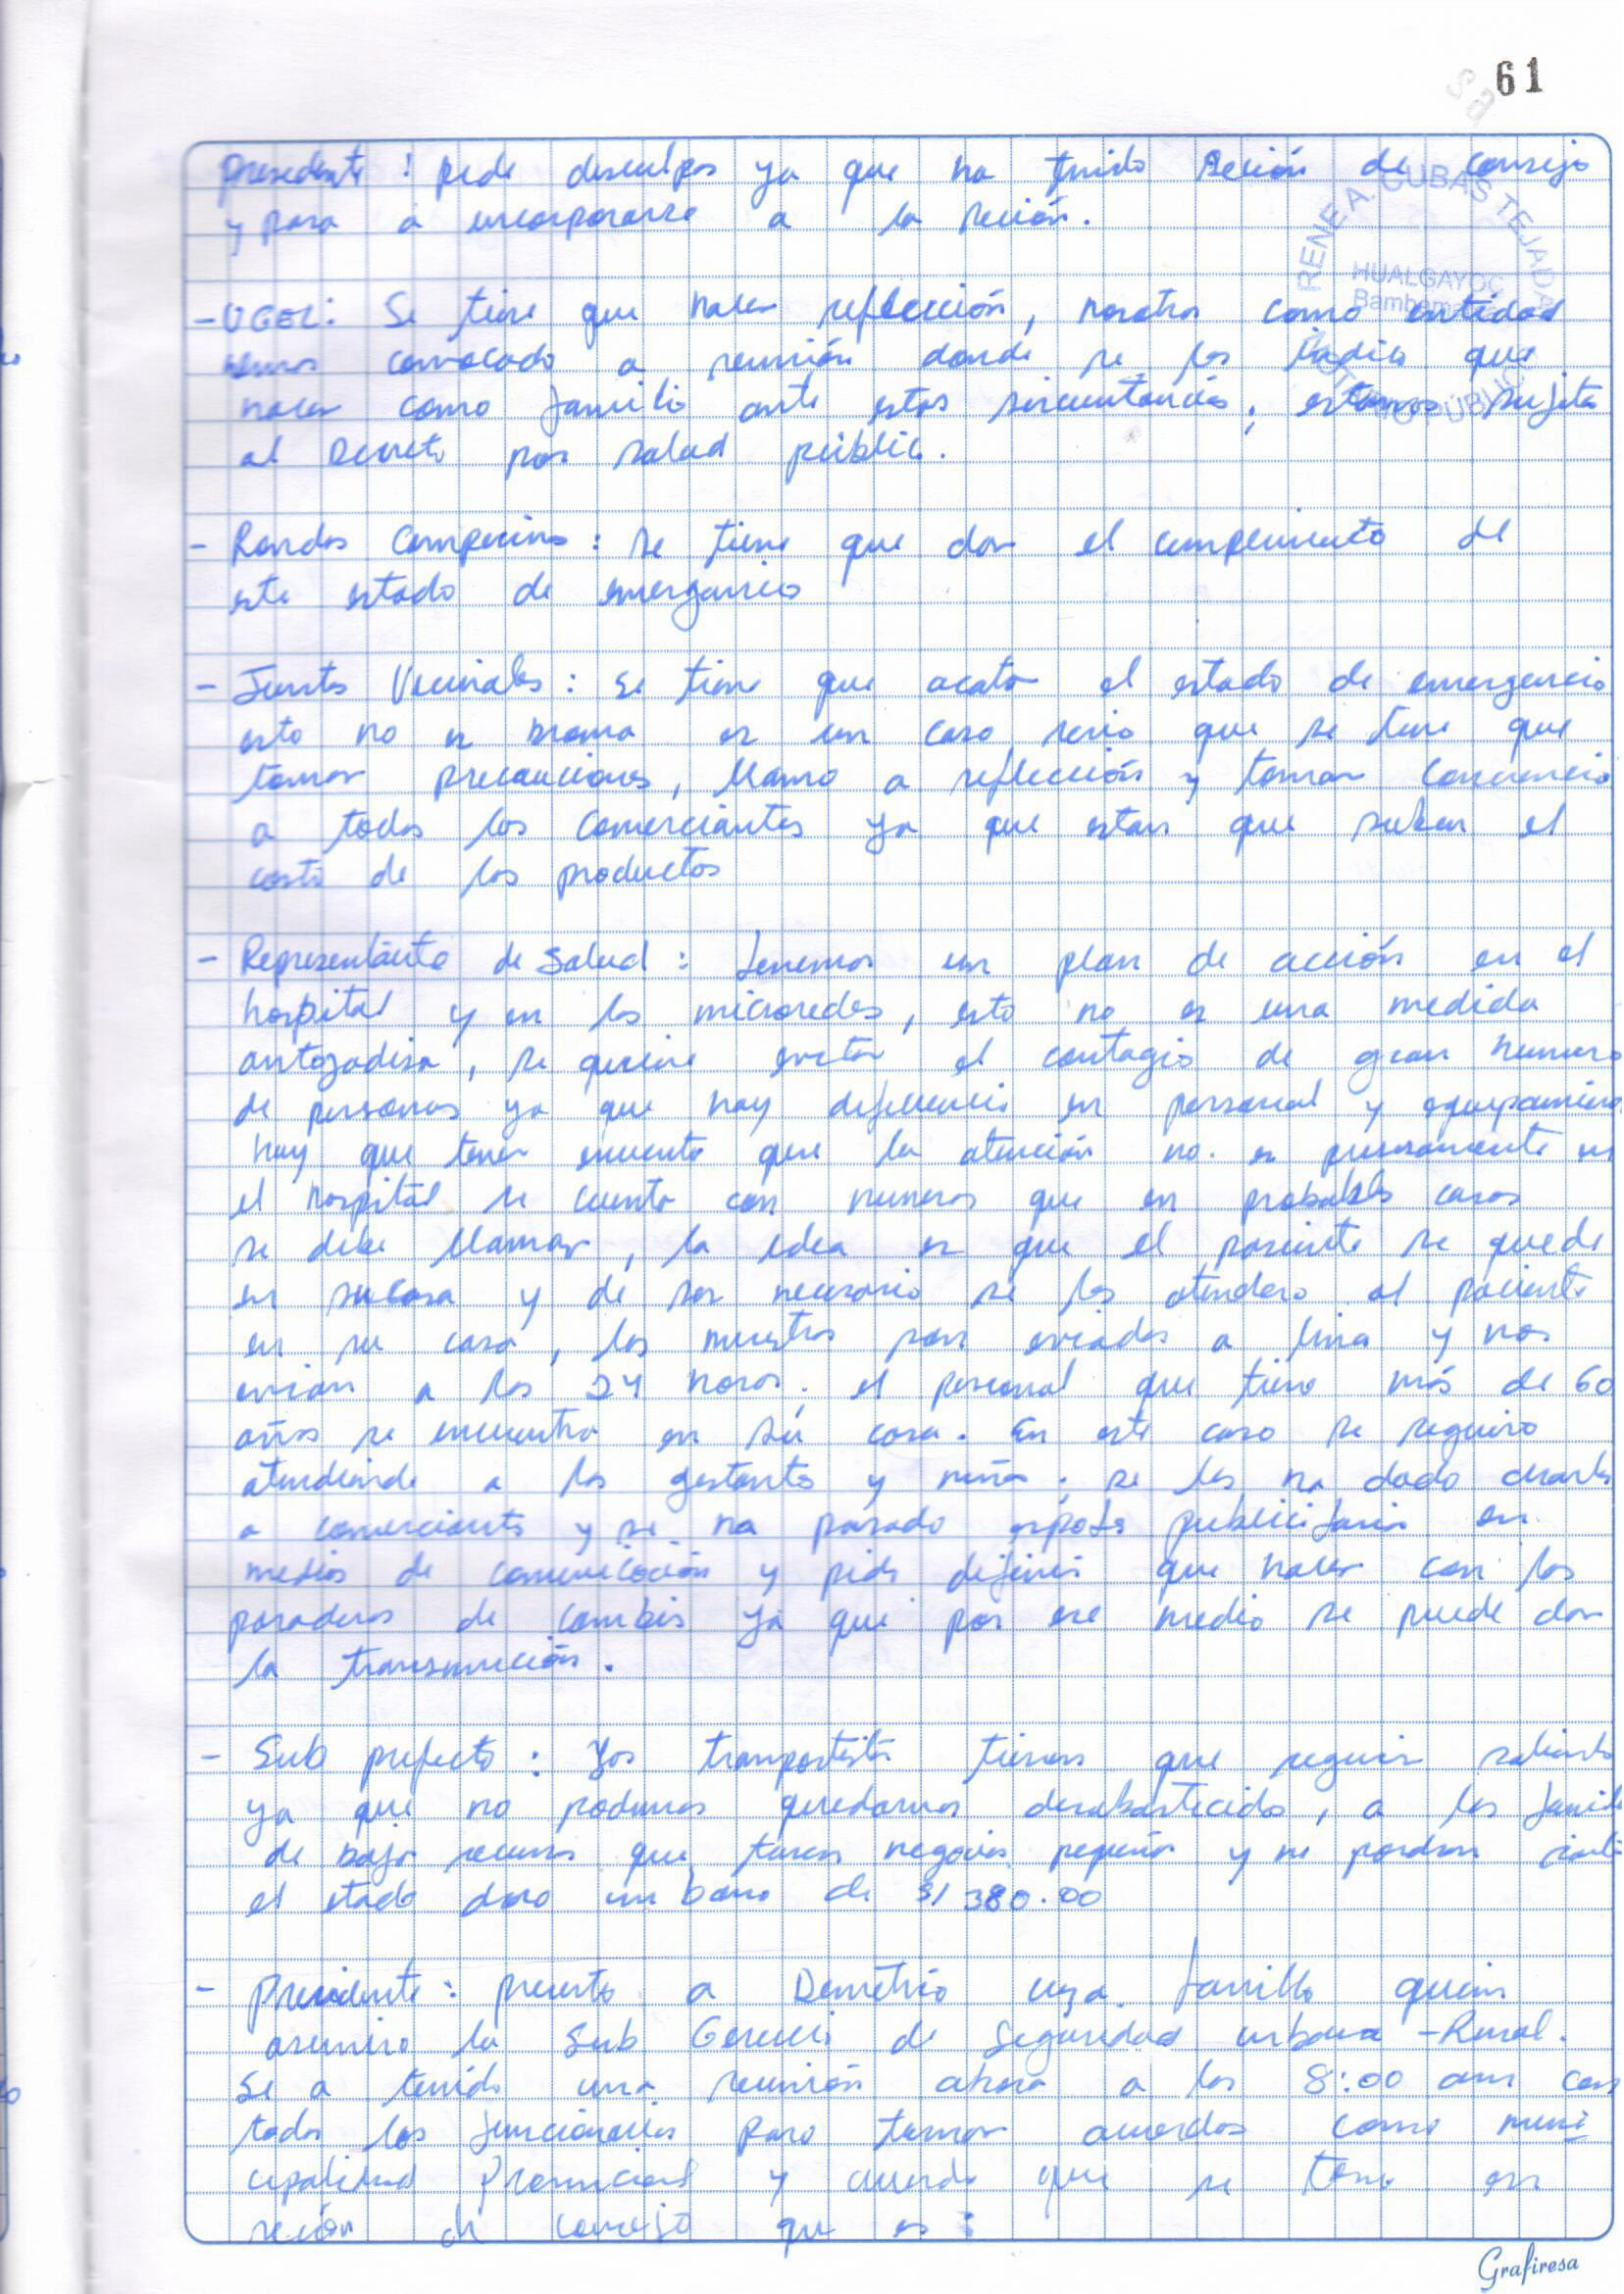 61
presedente : pide desculpas ya que ha tenido seción de consejo
y pasa a incorporarse a la seción.
RENE A. CUBAS TEJADA
HUALGAYOC
Bambamarca
- UGEL: Se tiene que hacer reflección, nosotros como entidad
hemos convocado a reunión donde se les indica que
hacer como familia ante estas sircuntancias, estamos sujetos
al Decreto por salud pública.
- Rondas Campecinas : se tiene que dar el cumplimiento de
este estado de emergencia
- Juntas Vecinales : se tiene que acatar el estado de emergencia
esto no es broma es un caso serio que se tiene que
tomar precauciones, llamo a reflección y tomar conciencia
a todos los comerciantes ya que estan que suben el
costo de los productos
- Representante de Salud : tenemos un plan de acción en el
hospital y en las microredes, esto no es una medida
antojadisa, se quiere evitar el contagio de gran numero
de personas ya que hay deficiencia en personal y equipamiento
hay que tener encuenta que la atención no es en
el hospital se cuenta con numeros que en probables casos
se debe llamar, la idea es que el pasiente se quede
en sucasa y de ser necesario se les atendera al paciente
en su casa, las muestras son enviadas a lima y nos
envian a las 24 horas. el personal que tiene más de 60
años se encuentra en su casa. En este caso se seguira
atendiendo a las gestantes y niños. se les ha dado charlas
a comerciantes y se ha pasado espots publicitarios en
medios de comunicación y pide definir que hacer con los
paraderos de combis ya que por ese medio se puede dar
la transmición.
- Sub prefecto : Los transportistas tienen que seguir saliendo
ya que no podemos quedarnos desabastecidos, a las familias
de bajos recursos que tienen negocios pequeños y no podran
el estado dara un bono de S/ 380.00
- Presidente : presento a Demetrio quien
asumira la Sub Gerencia de Seguridad urbana - Rural.
Se a tenido una reunión ahora a las 8:00 am con
todos los funcionarios para tomar acuerdos como muni
cipalidad Provincial y acuerdo que se tomo en
seción de consejo que es :
Grafiresa